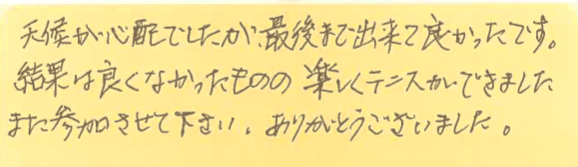 天候が心配でしたが、最後まで出来て良かったです。
結果は良くなかったものの 楽しくテニスができました
また参加させて下さい。ありがとうございました。